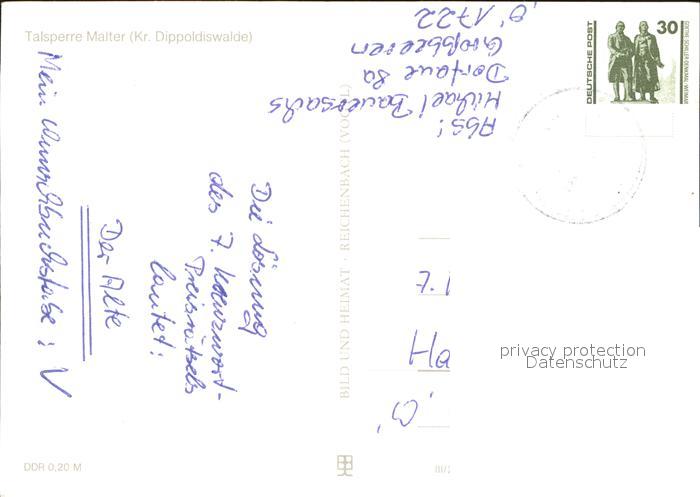 Talsperre Malter (Kr. Dippoldiswalde)
Die Lösung
des 7. Kreuzwort-
Preisrätsels
lautet:
Der Alte
Mein Wunschbuchstabe: V
Abs!
Michael Bauersachs
Dorfaue 8a
Großbeeren
1722
BILD UND HEIMAT · REICHENBACH (VOGTL)
DEUTSCHE POST
30
GOETHE-SCHILLER-DENKMAL WEIMAR
7.1
Ha
privacy protection
Datenschutz
DDR 0,20 M
III/